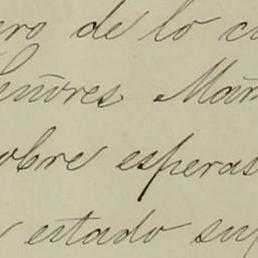 ero de lo c
Señores Man
obre esperas
estado su